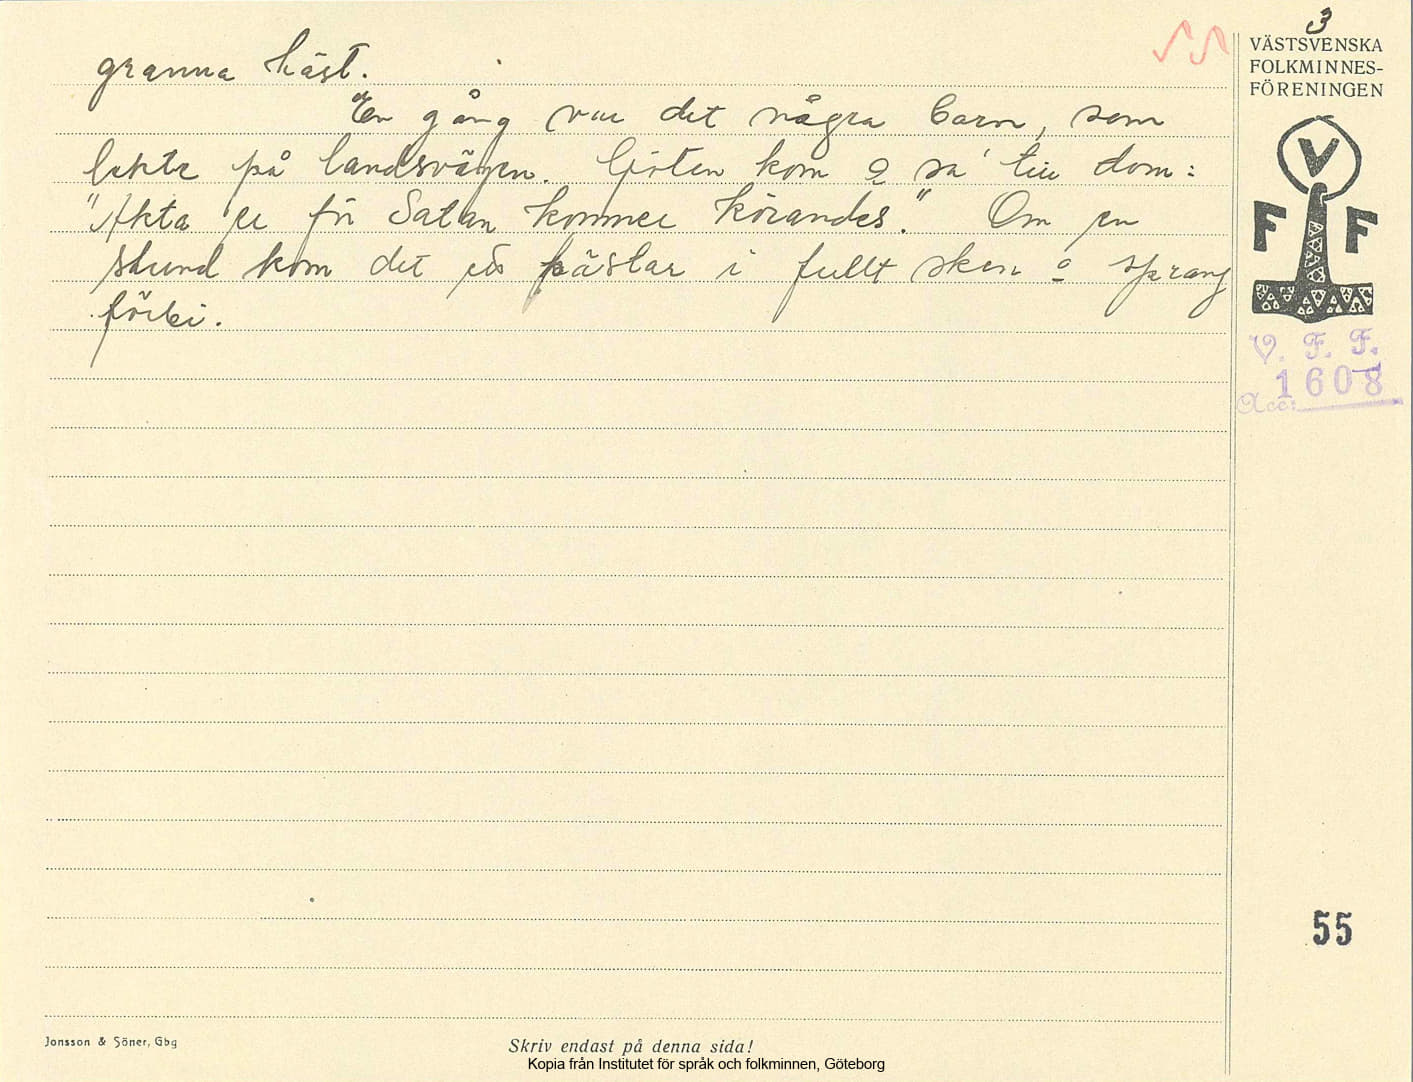 3
55
VÄSTSVENSKA
FOLKMINNES-
FÖRENINGEN
granna häst.
En gång var det några barn, som
lekte på landsvägen. Gjöten kom o sa' till dom:
"Akta er för Satan kommer körandes." Om en
stund kom det ett hästar i fullt sken o sprang
förbi.
V
F F
V. F. F.
1608
Acc:
55
Jonsson & Söner, Gbg
Skriv endast på denna sida!
Kopia från Institutet för språk och folkminnen, Göteborg